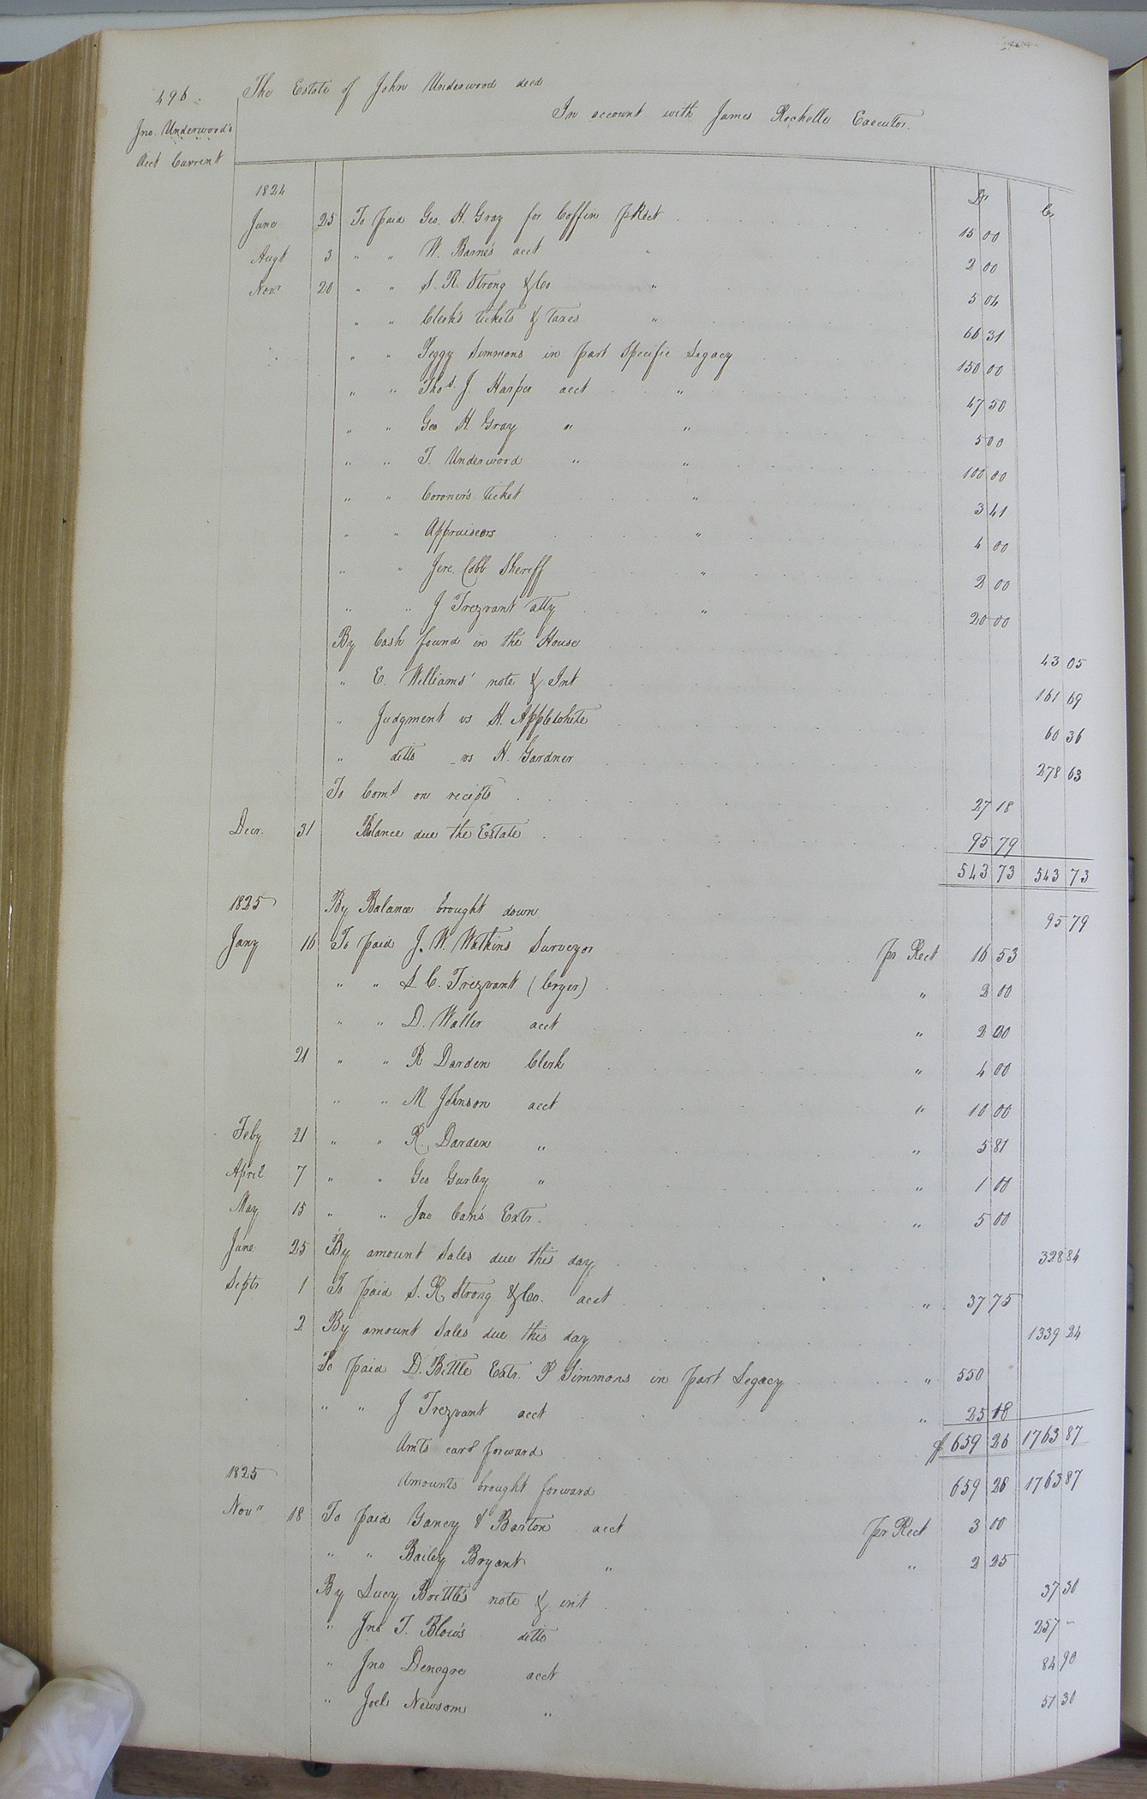 496
Jno. Underwood's
Acct Current
The Estate of John Underwood decd
In account with James Rochelle Executor.
Dr Cr
1824
June 25 To paid Geo. H. Gray for Coffin pRect 15 00
Augt 3 " " W. Barnes acct " 2 00
Novr 20 " " S. R. Strong & Co " 5 04
" " Clerk's tickets & Taxes " 66 31
" " Peggy Simmons in part Specific Legacy 150 00
" " Thos. J. Harper acct " 47 50
" " Geo H Gray " " 5 00
" " T. Underwood " " 100 00
" " Coroner's Ticket " 3 41
" " Appraisers " 4 00
" " Jere. Cobb Sheriff " 2 00
" " J Trezvant atty " 20 00
By Cash found in the House 43 05
" E. Williams' note & Int 161 69
" Judgment vs H. Applewhite 60 36
" ditto vs H. Gardner 278 63
To Coms on recipts 27 18
Decr. 31 Balance due the Estate 95 79
543 73 543 73
1825
By Balance brought down 95 79
Jany 16 To paid J. W. Watkins Surveyor pr Rect 16 53
" " S. C. Trezvant (Cryer) " 2 00
" " D. Waller acct " 2 00
21 " " R Darden Clerk " 4 00
" " M Johnson acct " 10 00
Feby 21 " " R. Darden " " 5 81
April 7 " " Geo Gurley " " 1 00
May 15 " " Jno Carr's Extr. " 5 00
June 25 By amount Sales due this day 328 84
Septr 1 To paid S. R Strong & Co. acct " 37 75
2 By amount Sales due this day 1339 24
To paid D. Bittle Extr. P Simmons in part Legacy " 550
" " J Trezvant acct " 25 18
Amts card forward $659 26 1763 87
1825
Amounts brought forward 659 26 1763 87
Novr 18 To paid Yancy & Barton acct pr Rect 3 00
" " Bailey Bryant " " 2 25
By Lucy Brittle's note & int 37 30
" Jno T. Blow's ditto 257 -
" Jno Denegre acct 84 90
" Joel Newsom " 51 30